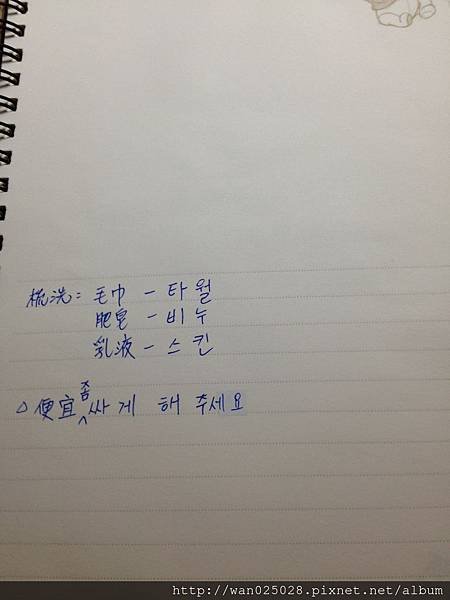 梳洗: 毛巾 - 타월
肥皂 - 비누
乳液 - 스킨
△ 便宜 좀 싸게 해 주세요
http://wan025028.pixnet.net/album